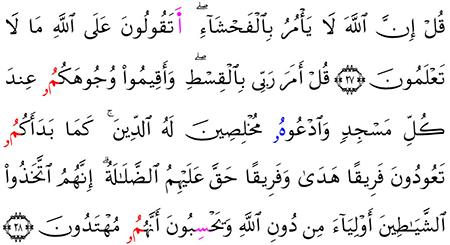 قُلْ إِنَّ ٱللَّهَ لَا يَأْمُرُ بِٱلْفَحْشَآءِ ۖ أَتَقُولُونَ عَلَى ٱللَّهِ مَا لَا
تَعْلَمُونَ ٢٧ قُلْ أَمَرَ رَبِّى بِٱلْقِسْطِ ۖ وَأَقِيمُوا۟ وُجُوهَكُمُۥ عِندَ
كُلِّ مَسْجِدٍ وَٱدْعُوهُۥ مُخْلِصِينَ لَهُ ٱلدِّينَ ۚ كَمَا بَدَأَكُمُۥ
تَعُودُونَ فَرِيقًا هَدَىٰ وَفَرِيقًا حَقَّ عَلَيْهِمُ ٱلضَّلَـٰلَةُ ۗ إِنَّهُمُ ٱتَّخَذُوا۟
ٱلشَّيَـٰطِينَ أَوْلِيَآءَ مِن دُونِ ٱللَّهِ وَيَحْسِبُونَ أَنَّهُمُۥ مُهْتَدُونَ ٢٨